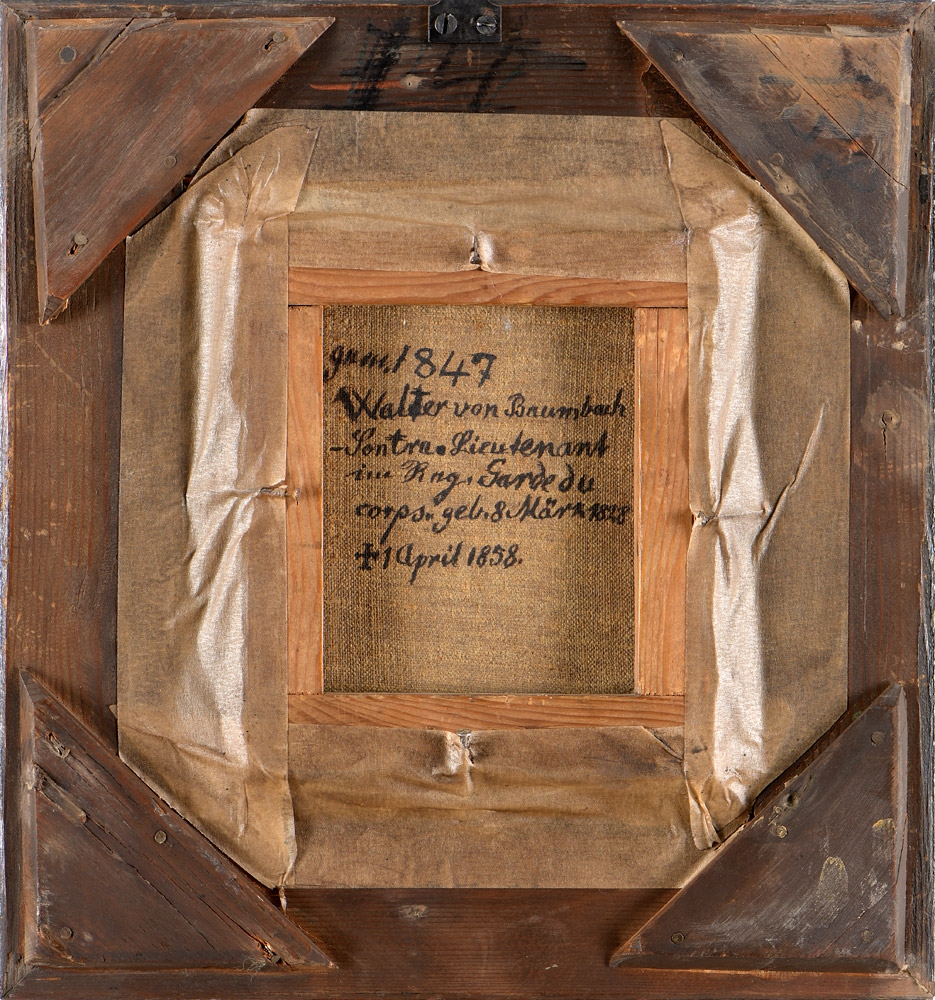 gem. 1847
Walter von Baumbach
-Sontra. Lieutenant
im Rng. Garde du
corps. geb. 8 März 1828
† 1 April 1858.